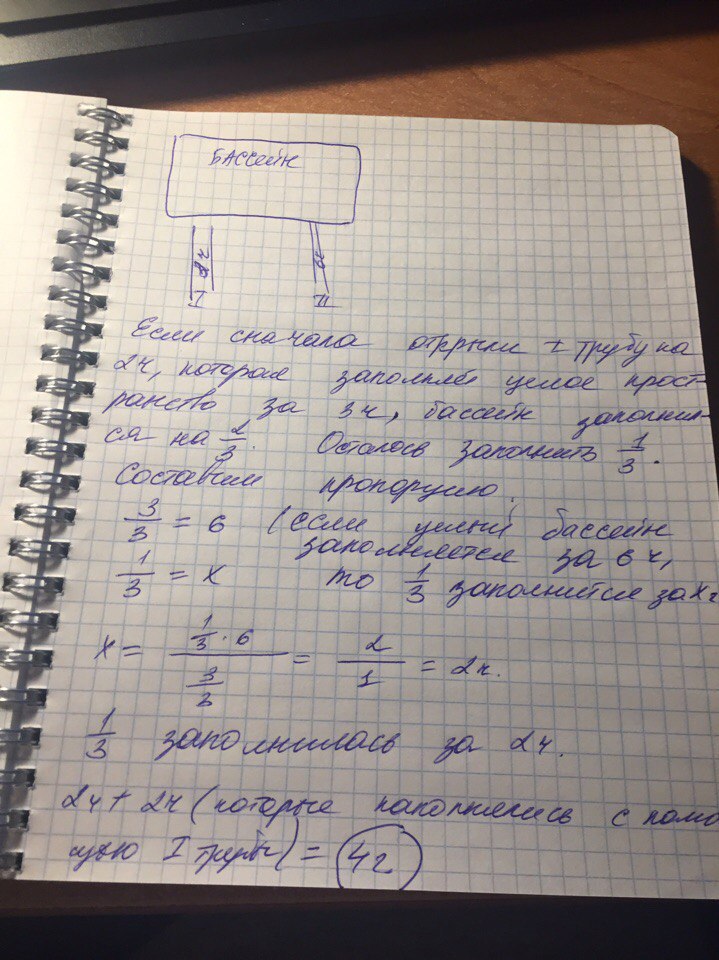 БАССЕЙН
2ч
6ч
I
II
Если сначала открыли I трубу на
2ч, которая заполняла целое прост-
ранство за 3ч, бассейн заполнил-
ся на 2/3. Осталось заполнить 1/3.
Составим пропорцию.
3/3 = 6 (если целый бассейн
заполняется за 6 ч,
1/3 = x то 1/3 заполнится за x ч
x = (1/3 · 6)/(3/3) = 2/1 = 2ч.
1/3 заполнилась за 2ч.
2ч + 2ч (которые наполнялись с помо
щью I трубы) = 4ч